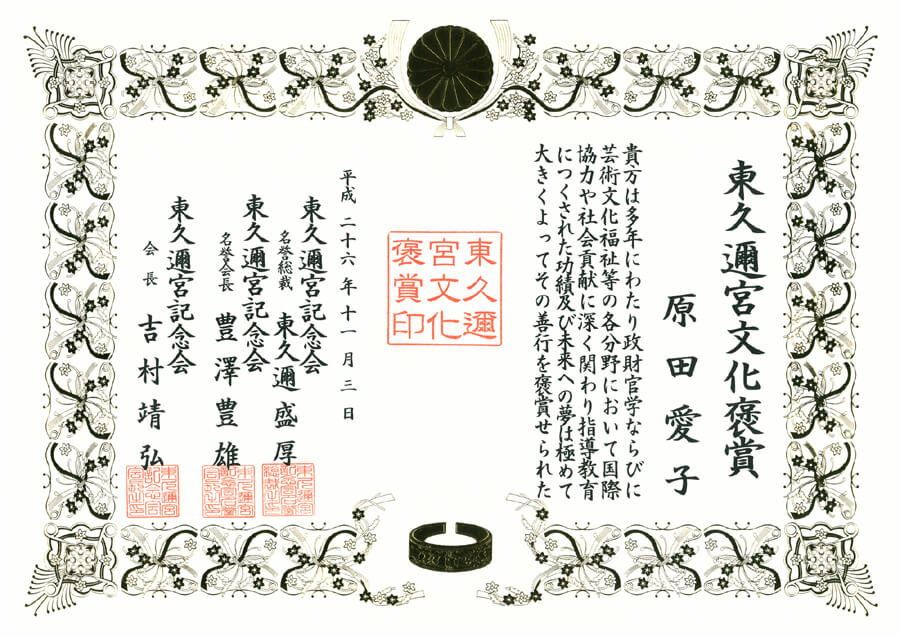 東久邇宮文化褒賞
原田愛子
貴方は多年にわたり政財官学ならびに
芸術文化福祉等の各分野において国際
協力や社会貢献に深く関わり指導教育
につくされた功績及び未来への夢は極めて
大きくよってその善行を褒賞せられた
東久邇
宮文化
褒賞印
平成二十六年十一月三日
東久邇宮記念会
名誉総裁 東久邇盛厚
東久邇宮記念会
名誉会長 豊澤豊雄
東久邇宮記念会
会長 吉村靖弘